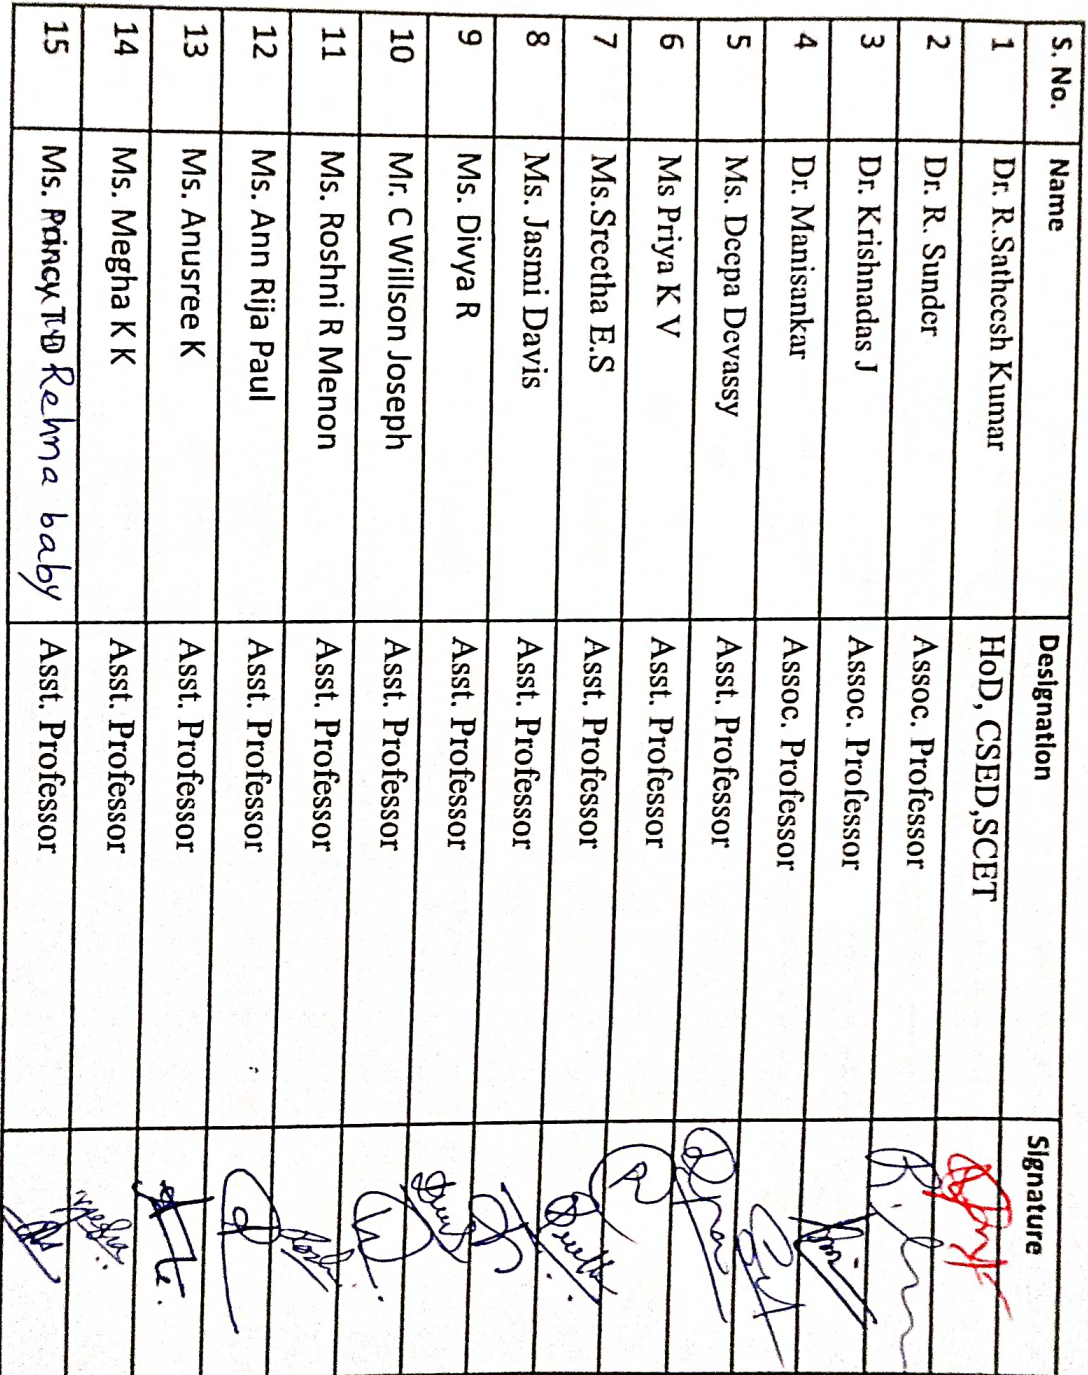 S. No. Name Designation Signature
1 Dr. R.Satheesh Kumar HoD, CSED,SCET
2 Dr. R. Sunder Assoc. Professor
3 Dr. Krishnadas J Assoc. Professor
4 Dr. Manisankar Assoc. Professor
5 Ms. Deepa Devassy Asst. Professor
6 Ms Priya K V Asst. Professor
7 Ms.Sreetha E.S Asst. Professor
8 Ms. Jasmi Davis Asst. Professor
9 Ms. Divya R Asst. Professor
10 Mr. C Willson Joseph Asst. Professor
11 Ms. Roshni R Menon Asst. Professor
12 Ms. Ann Rija Paul Asst. Professor
13 Ms. Anusree K Asst. Professor
14 Ms. Megha K K Asst. Professor
15 Ms. Rehma baby Asst. Professor